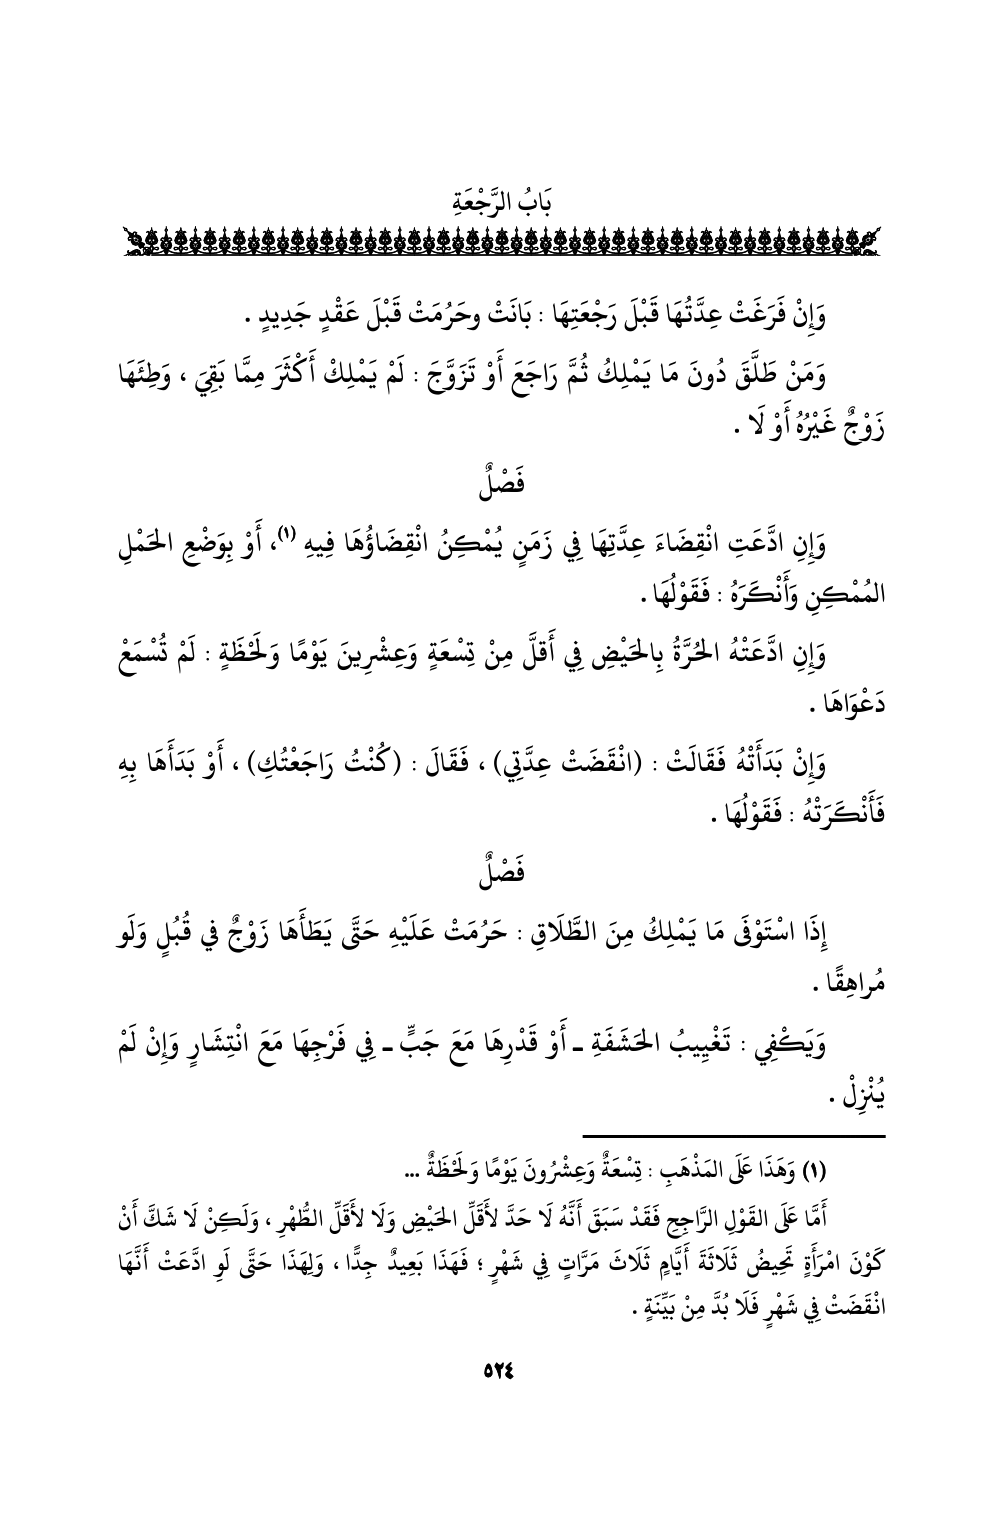 بَابُ الرَّجْعَةِ
وَإِنْ فَرَغَتْ عِدَّتُهَا قَبْلَ رَجْعَتِهَا : بَانَتْ وحَرُمَتْ قَبْلَ عَقْدٍ جَدِيدٍ .
وَمَنْ طَلَّقَ دُونَ مَا يَمْلِكُ ثُمَّ رَاجَعَ أَوْ تَزَوَّجَ : لَمْ يَمْلِكْ أَكْثَرَ مِمَّا بَقِيَ ، وَطِئَهَا
زَوْجٌ غَيْرُهُ أَوْ لَا .
فَصْلٌ
وَإِنِ ادَّعَتِ انْقِضَاءَ عِدَّتِهَا فِي زَمَنٍ يُمْكِنُ انْقِضَاؤُهَا فِيهِ (١)، أَوْ بِوَضْعِ الحَمْلِ
المُمْكِنِ وَأَنْكَرَهُ : فَقَوْلُهَا .
وَإِنِ ادَّعَتْهُ الحُرَّةُ بِالحَيْضِ فِي أَقلَّ مِنْ تِسْعَةٍ وَعِشْرِينَ يَوْمًا وَلَحْظَةٍ : لَمْ تُسْمَعْ
دَعْوَاهَا .
وَإِنْ بَدَأَتْهُ فَقَالَتْ : (انْقَضَتْ عِدَّتِي) ، فَقَالَ : (كُنْتُ رَاجَعْتُكِ) ، أَوْ بَدَأَهَا بِهِ
فَأَنْكَرَتْهُ : فَقَوْلُهَا .
فَصْلٌ
إِذَا اسْتَوْفَى مَا يَمْلِكُ مِنَ الطَّلَاقِ : حَرُمَتْ عَلَيْهِ حَتَّى يَطَأَهَا زَوْجٌ في قُبُلٍ وَلَو
مُراهِقًا .
وَيَكْفِي : تَغْيِيبُ الحَشَفَةِ ـ أَوْ قَدْرِهَا مَعَ جَبٍّ ـ فِي فَرْجِهَا مَعَ انْتِشَارٍ وَإِنْ لَمْ
يُنْزِلْ .
(١) وَهَذَا عَلَى المَذْهَبِ : تِسْعَةٌ وَعِشْرُونَ يَوْمًا وَلَحْظَةٌ ...
أَمَّا عَلَى القَوْلِ الرَّاجِحِ فَقَدْ سَبَقَ أَنَّهُ لَا حَدَّ لأَقَلِّ الحَيْضِ وَلَا لأَقَلِّ الطُّهْرِ ، وَلَكِنْ لَا شَكَّ أَنْ
كَوْنَ امْرَأَةٍ تَحِيضُ ثَلَاثَةَ أَيَّامٍ ثَلَاثَ مَرَّاتٍ فِي شَهْرٍ ؛ فَهَذَا بَعِيدٌ جِدًّا ، وَلِهَذَا حَتَّى لَوِ ادَّعَتْ أَنَّهَا
انْقَضَتْ فِي شَهْرٍ فَلَا بُدَّ مِنْ بَيِّنَةٍ .
٥٢٤